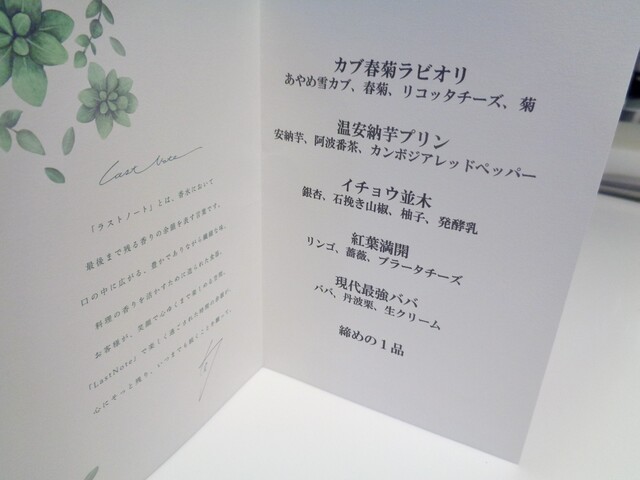 Last Note
「ラストノート」とは、香水において
最後まで残る香りの余韻を表す言葉です。
口の中に広がる、豊かでありながら繊細な味。
料理の香りを活かすために造られた空間。
お客様が、笑顔で心ゆくまで楽しめる空間。
「LastNote」で楽しく過ごされた時間の余韻が、
心にそっと残り、いつまでも続くことを願って。
カブ春菊ラビオリ
あやめ雪カブ、春菊、リコッタチーズ、菊
温安納芋プリン
安納芋、阿波番茶、カンボジアレッドペッパー
イチョウ並木
銀杏、石挽き山椒、柚子、発酵乳
紅葉満開
リンゴ、薔薇、ブラータチーズ
現代最強ババ
ババ、丹波栗、生クリーム
締めの1品